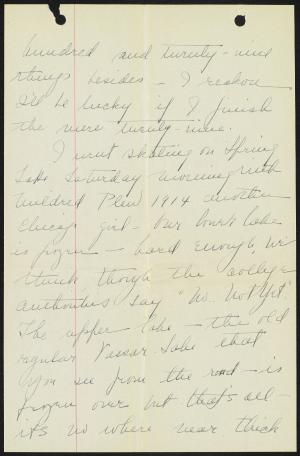 hundred and twenty-nine
things besides - I reckon
I'll be lucky if I finish
the mere twenty-nine.
I went skating on Spring
Lake Saturday morning with
Mildred Plew 1914 another
Chicago girl - Our lower lake
is frozen - hard enough we
think though the college
authorities say "No. Not Yet."
The upper lake - the old
regular Vassar Lake that
you see from the road - is
frozen over but that's all -
it's no where near thick